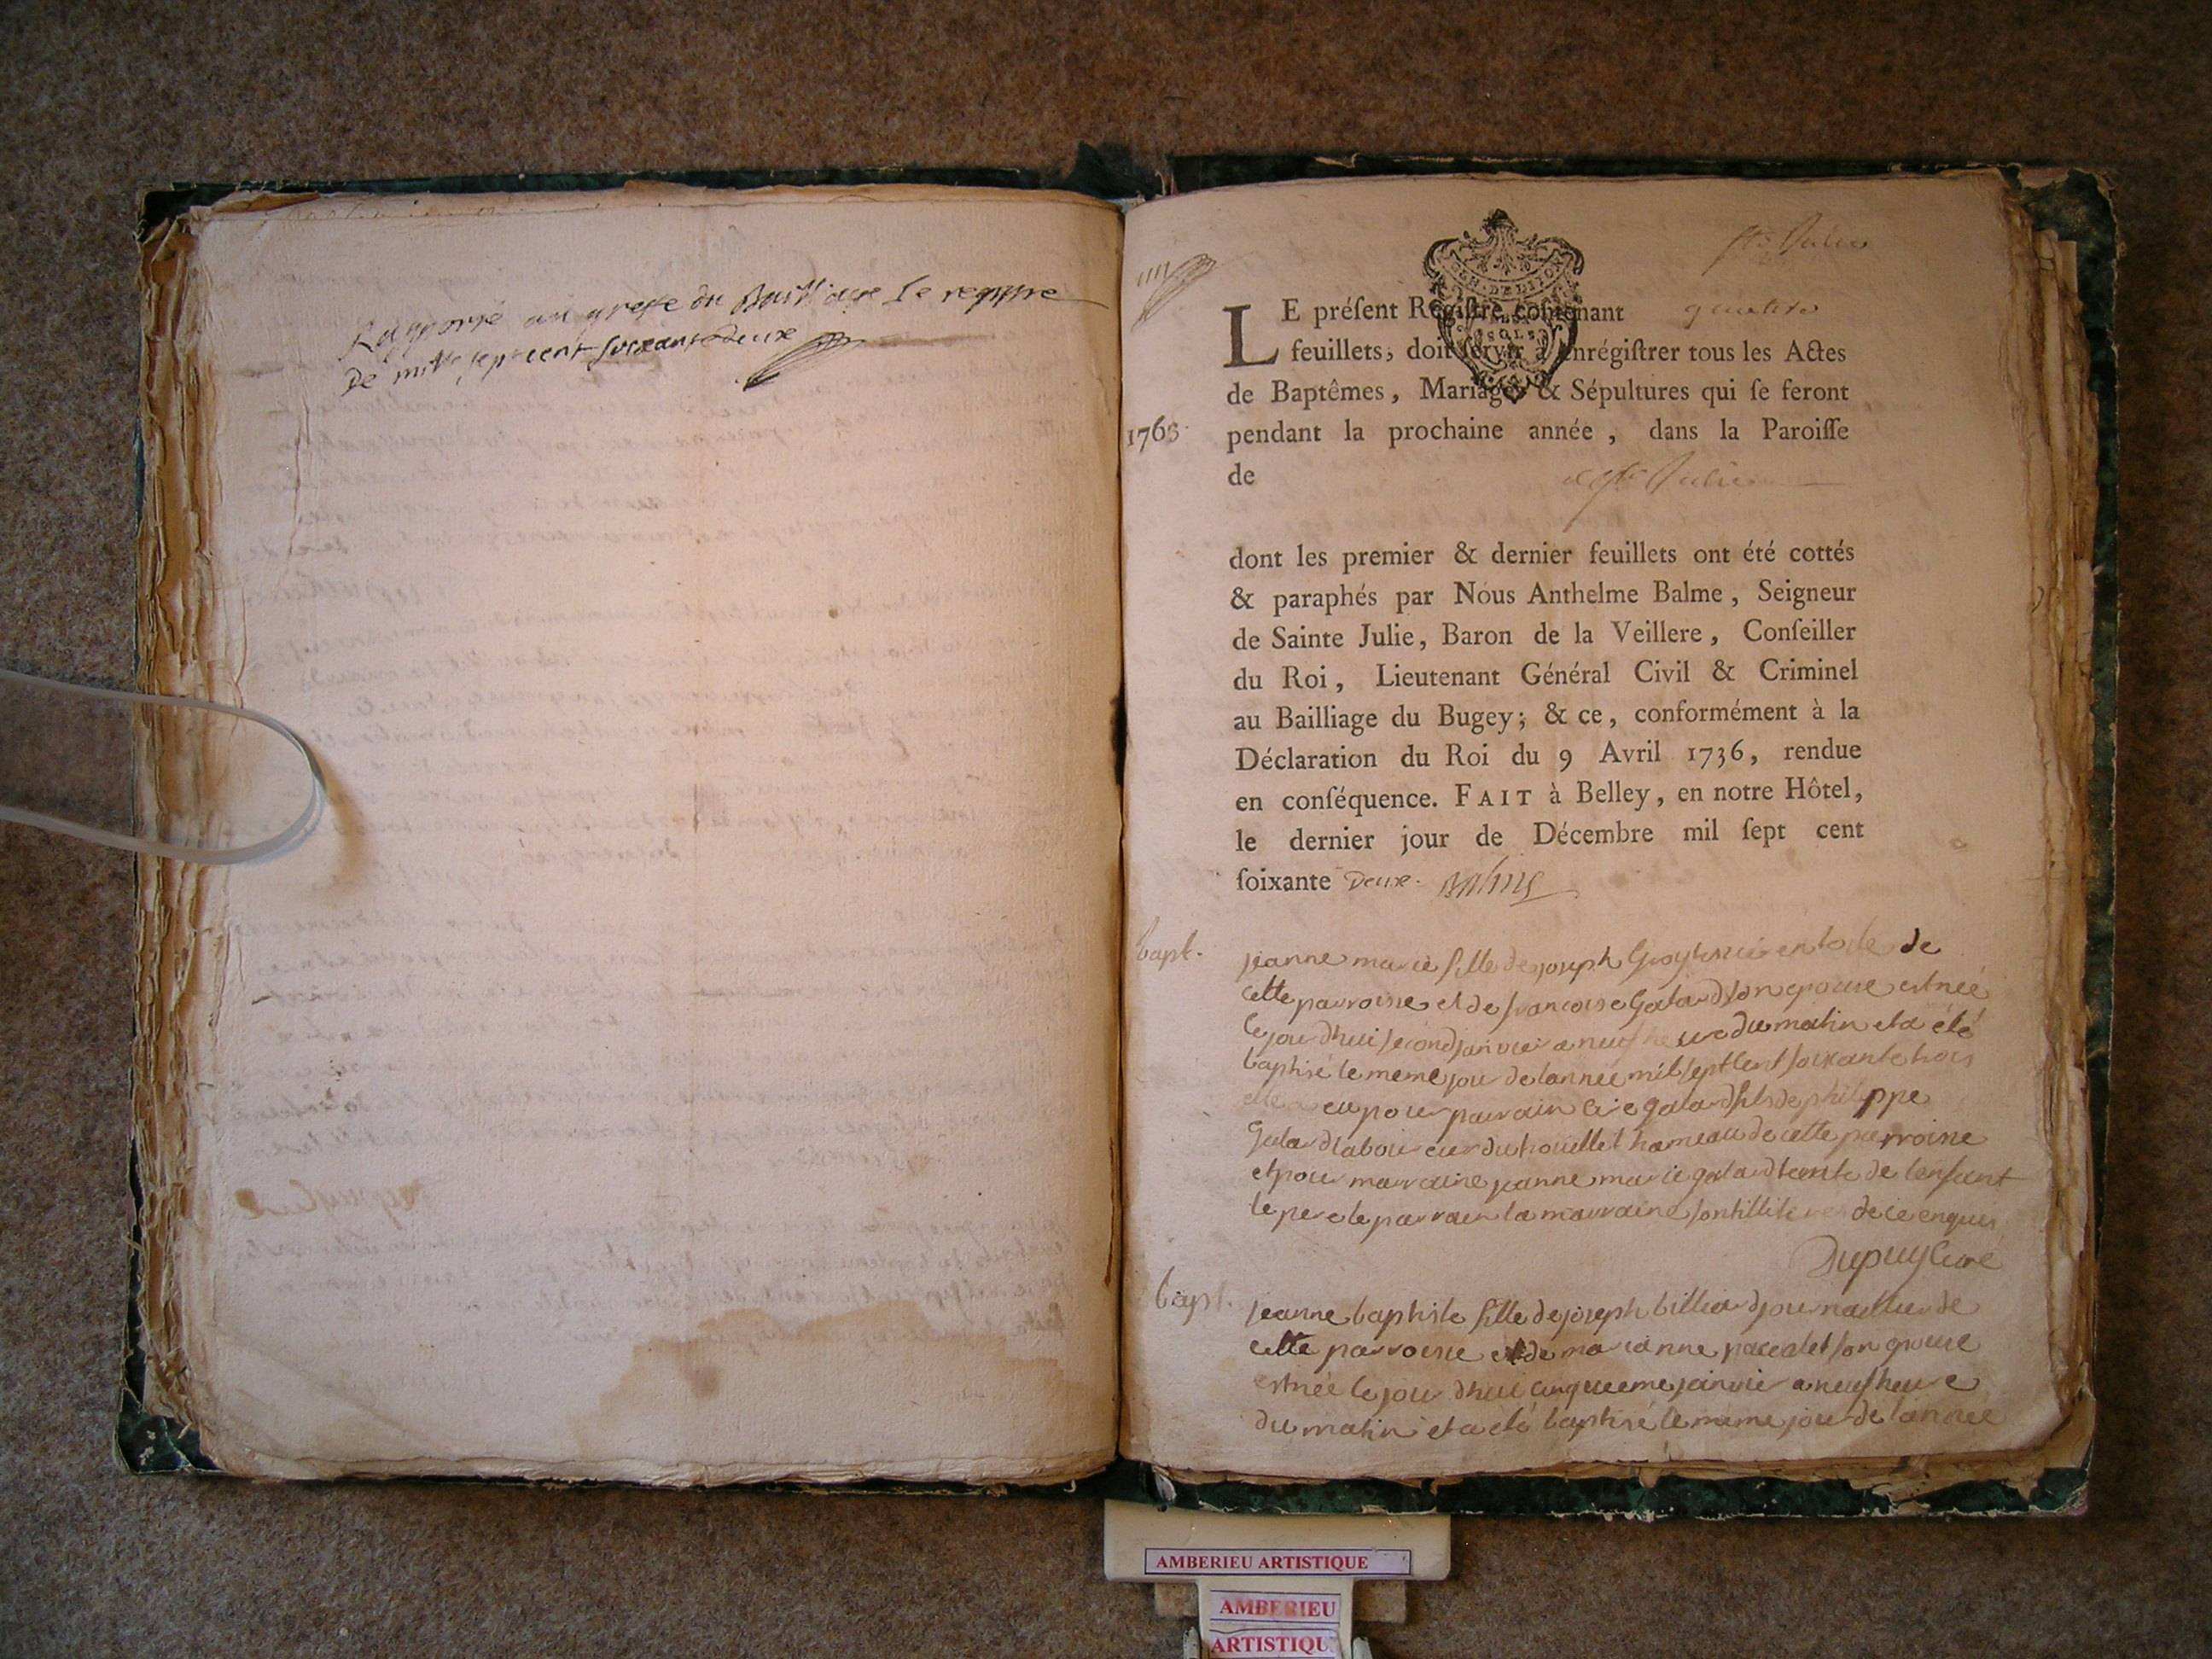 Rapporté au greffe du Bailliage le registre
De mille sept cent soixante deux
Ste Julie
LE préſent Regiſtre contenant quatorze
feuillets, doit ſervir à enrégiſtrer tous les Actes
de Baptêmes, Mariages & Sépultures qui ſe feront
1763. pendant la prochaine année, dans la Paroiſſe
de de Ste Julie
dont les premier & dernier feuillets ont été cottés
& paraphés par Nous Anthelme Balme, Seigneur
de Sainte Julie, Baron de la Veillere, Conſeiller
du Roi, Lieutenant Général Civil & Criminel
au Bailliage du Bugey; & ce, conformément à la
Déclaration du Roi du 9 Avril 1736, rendue
en conſéquence. FAIT à Belley, en notre Hôtel,
le dernier jour de Décembre mil ſept cent
ſoixante Deux. Balme
bapt.
jeanne marie fille de joseph en toile de
cette parroisse et de francoise Galard son epouse est née
le jourdhui second janvier a neuf heure du matin et a été
baptisé le meme jour de lannée mil sept cent soixante trois
elle a eu pour parrain galard fils de philippe
Galard laboureur du trouillet hameau de cette parroisse
et pour marraine jeanne marie galard tante de lenfant
le pere le parrain la marraine sont illiteres de ce enquis
Dupuy Curé
bapt.
jeanne baptiste fille de joseph billiard journaillier de
cette parroisse et de marianne pacalet son epouse
est née le jour dhui cinquieme janvier a neuf heure
du matin et a été baptisé le meme jour de lannee
AMBERIEU ARTISTIQUE
AMBERIEU
ARTISTIQU